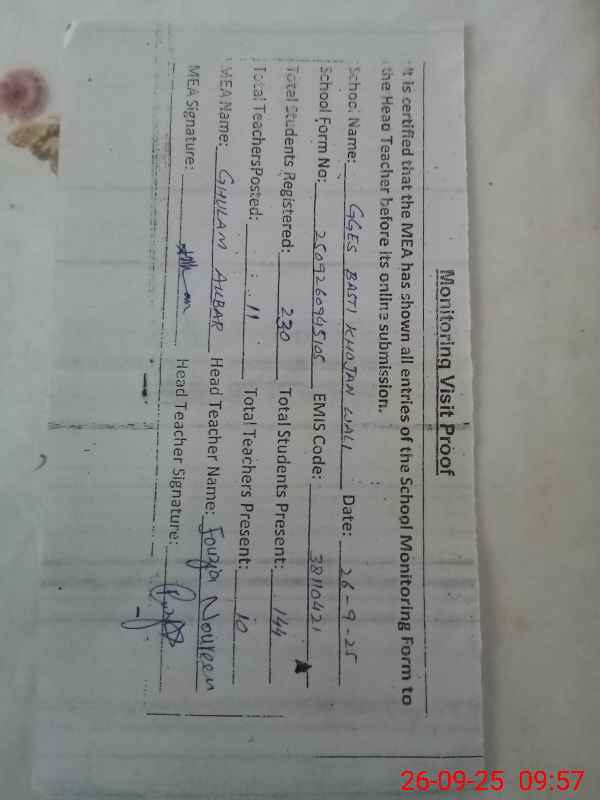 Monitoring Visit Proof
It is certified that the MEA has shown all entries of the School Monitoring Form to
the Head Teacher before its online submission.
School Name: GGES BASTI KHOJAN WALI Date: 26-9-25
School Form No: 2509260945105 EMIS Code: 38110421
Total Students Registered: 230 Total Students Present: 144
Total TeachersPosted: 11 Total Teachers Present: 10
MEA Name: GHULAM AKBAR Head Teacher Name: Fouzia Noureen
MEA Signature: Head Teacher Signature:
26-09-25 09:57